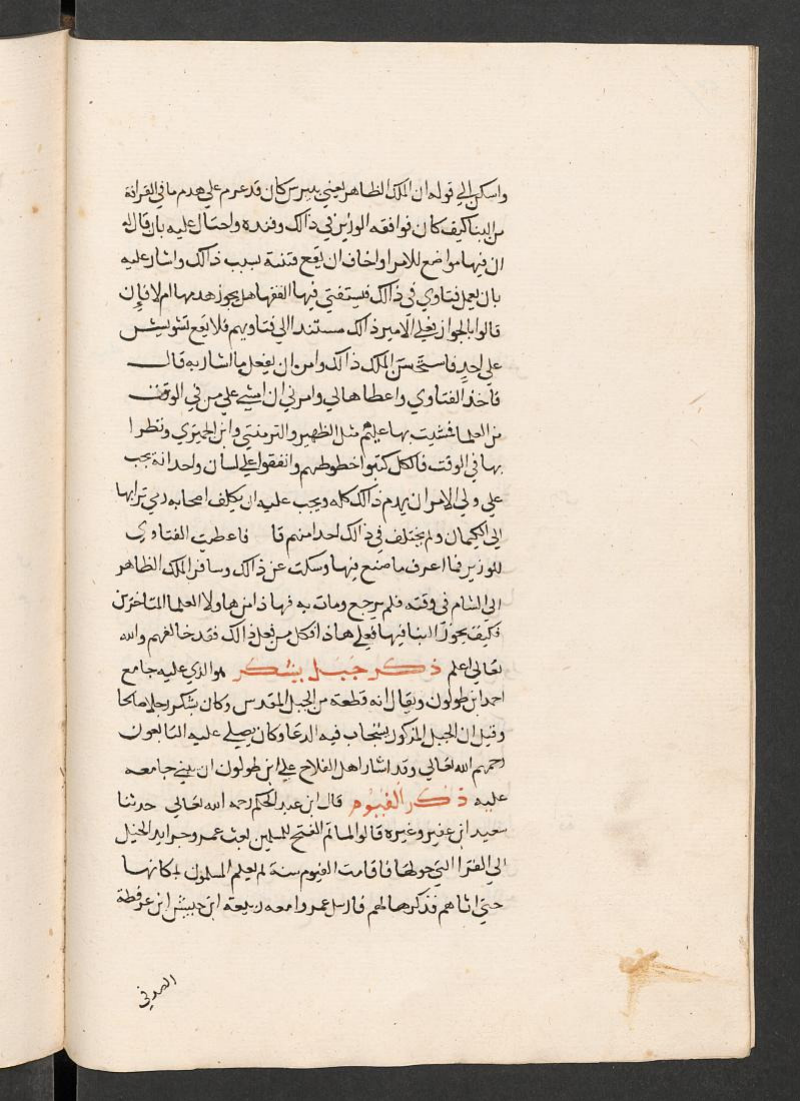 واسكن الي قوله ان الملك الظاهر يعني بيبرس كان قد عزم علي هدم ما في القرافة
من البنا كيف كان فوافقه الوزير في ذالك وفنده واحتال عليه بان قال له
ان فيها مواضع للامرا واخاف ان يقع فتنة بسبب ذالك واشار عليه
بان يعمل فتاوي في ذالك فيستفتي فيها الفقها هل يجوز هدمها ام لا فإن
قالوا بالجواز فعلي الامير ذالك مستندا الي فتاويهم فلا يقع تشويش
علي احدٍ فاستحسن الملك ذالك وامن ان يفعل ما اشار به قال
فاخذ الفتاوي واعطاها لي وامرني ان امشي علي من في الوقت
من العلما فمشيت بها عليهم مثل الظهير والترمنتي وابن الجميزي ونظرا
بها في الوقت فالكل كتبوا خطوطهم واتفقوا علي لسان واحد انه يجب
علي ولي الامر ان يهدم ذالك كله ويجب عليه ان يكلف اصحابه رمي ترابها
الي الكيمان ولم يختلف في ذالك احد منهم قا فاعطيت الفتاوي
للوزير فما اعرف ما صنع فيها وسكت عن ذالك وسافر الملك الظاهر
الي الشام في وقته فلم يرجع ومات به فهاذا من هاولا العلما المتاخرين
فكيف يجوز البنا فيها فعلي هاذا فكل من فعل ذالك فقد خالفهم والله
تعالي اعلم ذكر جبل يشكر هو الذي عليه جامع
احمد ابن طولون ويقال انه قطعة من الجبل المقدس وكان يشكر رجلا صالحا
وقيل ان الجبل المذكور يستجاب فيه الدعا وكان يصلي عليه التابعون
رحمهم الله تعالي وقد اشار اهل الفلاح علي ابن طولون ان يبني جامعه
عليه ذكر الفيوم قال ابن عبد الحكم رحمه الله تعالي حدثنا
سعيد ابن عفير وغيره قالوا لما تم الفتح للمسلمين بعث عمرو جرايد الخيل
الي القرا التي حولها فاقامت الفيوم سنة لم يعلم المسلمون بمكانها
حتي اتاهم فذكرها لهم فارسل عمروا معه ربيعة ابن حبيش ابن عرفطة
الصدفي